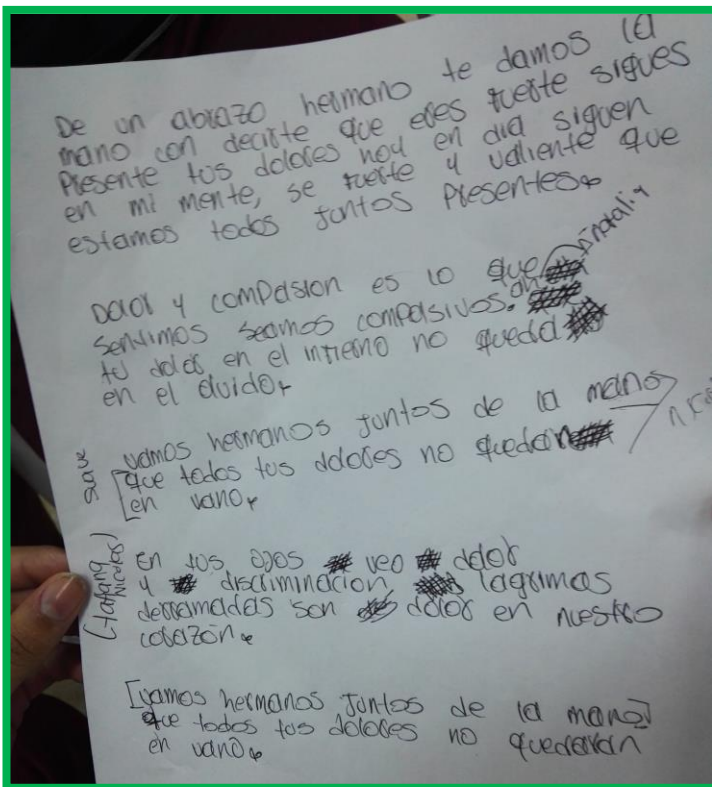 De un abrazo hermano te damos la
mano con decirte que eres fuerte sigues
Presente tus dolores hoy en dia siguen
en mi mente, se fuerte y valiente que
estamos todos juntos Presentes.
Dolor y compasion es lo que
natalia
sentimos seamos compasivos.
tu dolor en el infierno no queda
en el olvido.
suave
vamos hermanos juntos de la mano
que todos tus dolores no quedaran
en vano.
Nicolas)
En tus ojos veo dolor
y discriminacion lagrimas
derramadas son dolor en nuestro
corazón.
[vamos hermanos juntos de la mano]
que todos tus dolores no quedaran
en vano.